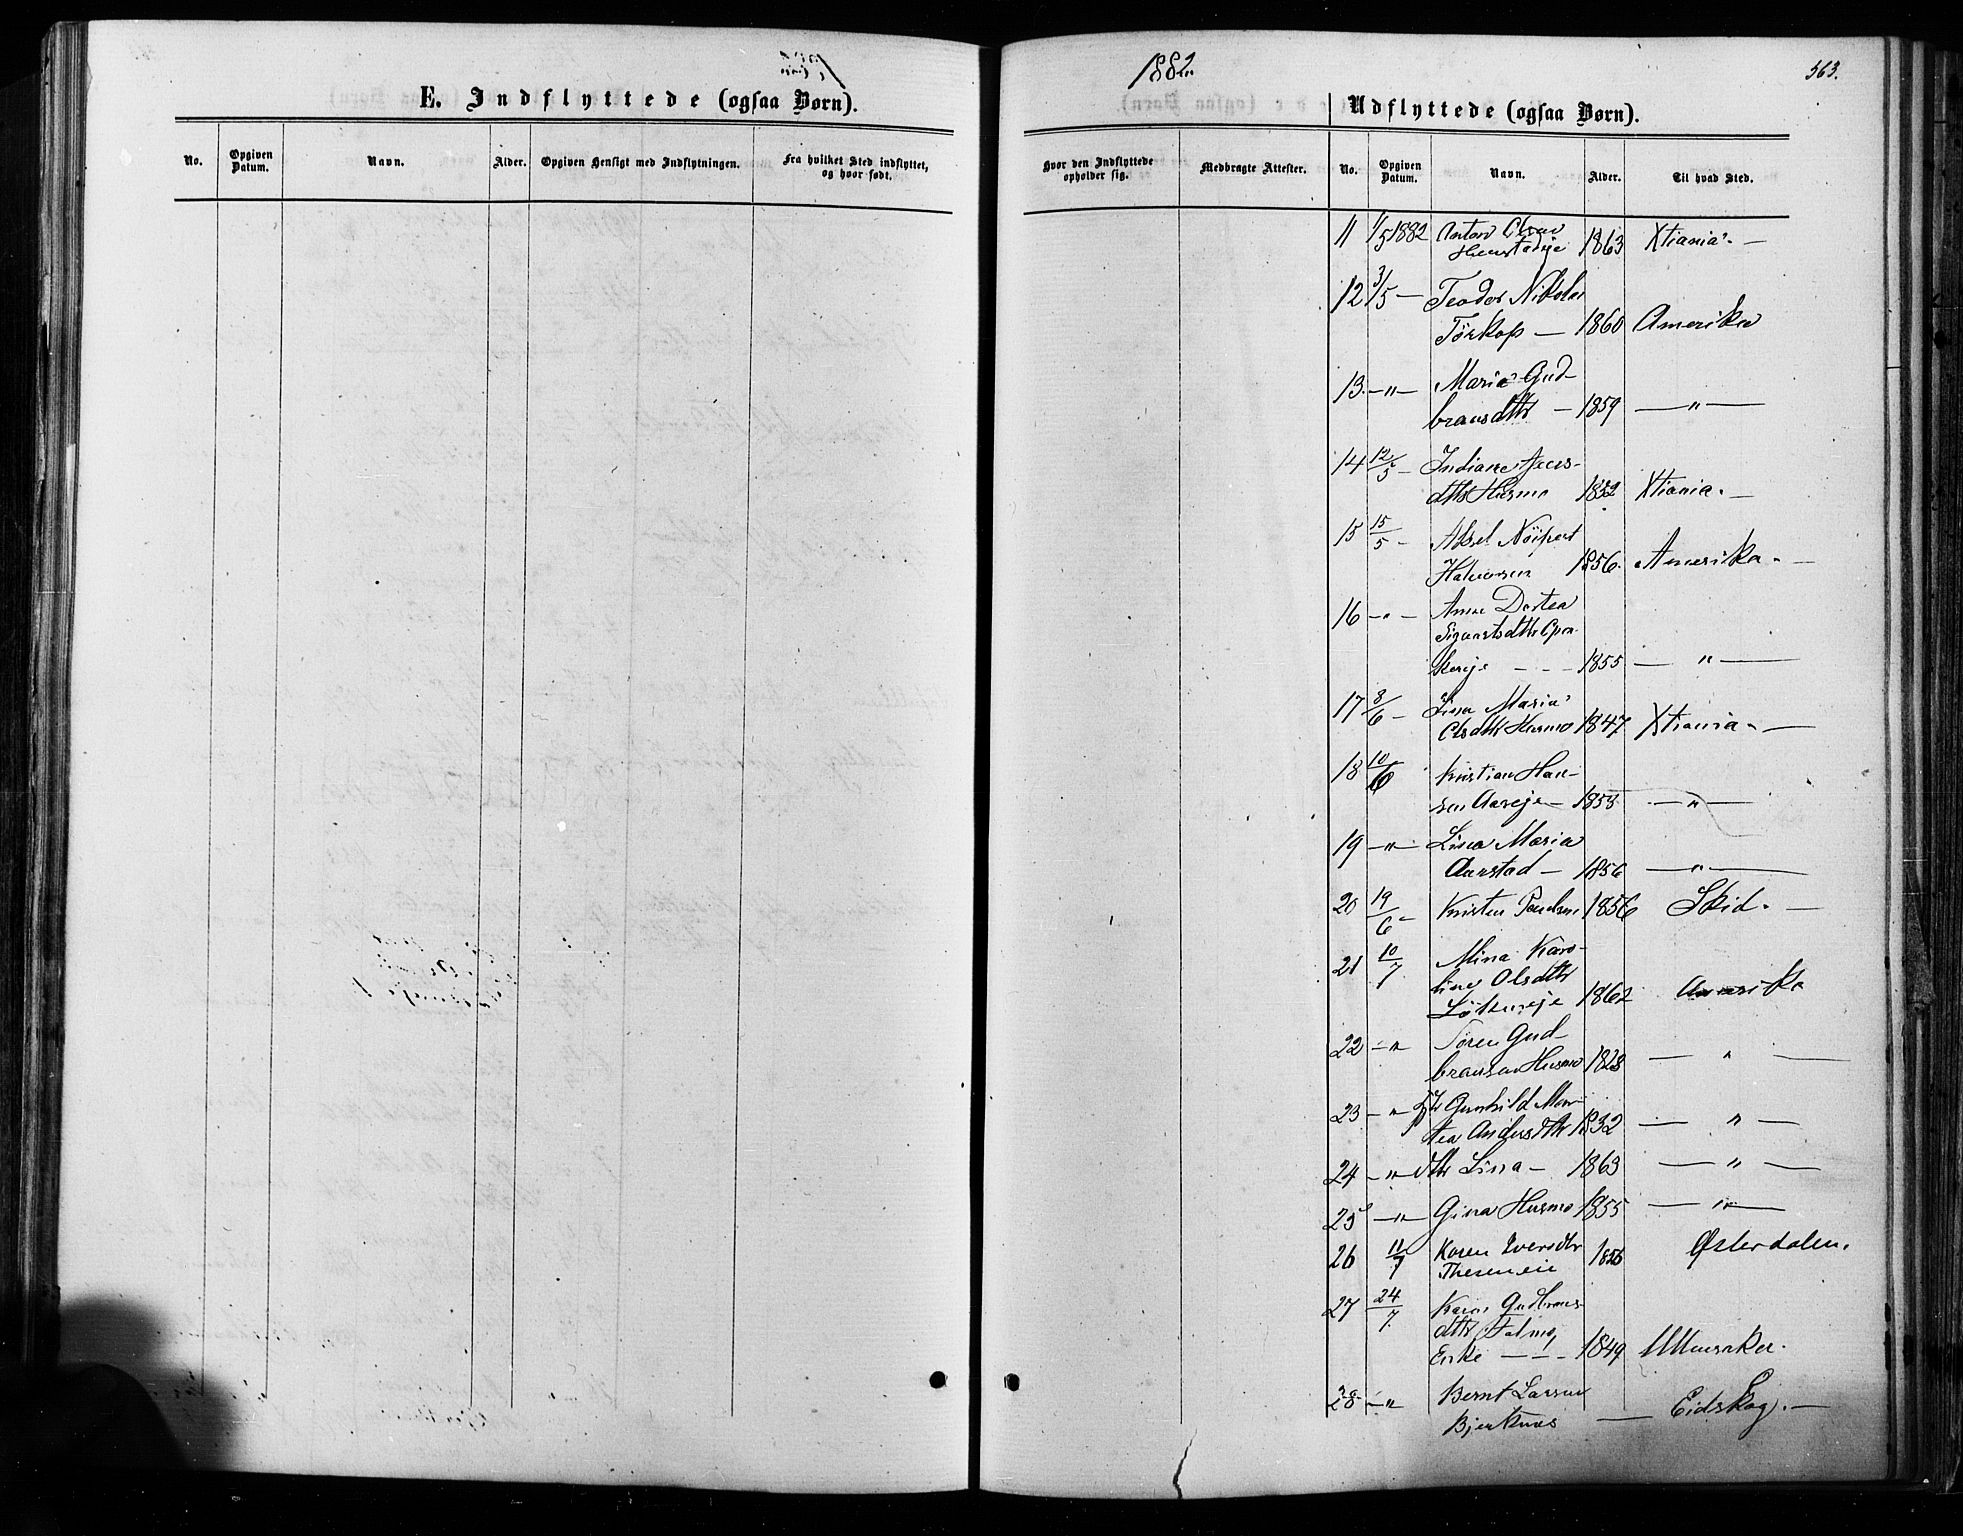 E. Indflyttede (ogsaa Børn).
No.
Opgiven Datum.
Navn.
Alder.
Opgiven Hensigt med Indflytningen.
Fra hvilket Sted indflyttet, og hvor født.
1882
363.
Udflyttede (ogsaa Børn).
Hvor den Indflyttede opholder sig.
Medbragte Attester.
No.
Opgiven Datum.
Navn.
Alder.
Til hvad Sted.
11 1/5 1882 Anton Olsen
1863 Xtiania. —
12 3/5 — Teodor Nikolai
Tørkop — 1860 Amerika
13 — " — Maria Gud-
bransdttr — 1859 — " —
14 12/5 — Indiane
dttr Husmo 1852 Xtiania. —
15 15/5 — Aksel
Halvorsen 1856. Amerika. —
16 — " — Anne Dortea
1855 — " —
17 8/6 — Lina Maria
Olsdttr Husmo 1847 Xtiania. —
18 10/6 Kristian Han-
sen Aaseje — 1858 — " —
19 — " — Lina Maria
Aarstad — 1856 — " —
20 19/6 — Kristen Paulsen 1856 Skid. —
21 10/7 Mina Karo-
line Olsdttr
1862 Amerika
22 — " Søren Gud-
bransen Husmo 1828 — " —
23 — " Gunhild Mar-
tea Andersdttr 1832 — " —
24 — " dttr Lina — 1863 — " —
25 — " — Gina Husmo 1855 — " —
26 11/7 Karen Iversdtr
1856 Østerdalen.
27 24/7 Karen Gudbrans-
dttr
Enke — — 1849 Ullensaker.
28 — " Bernt Larsen
Bjerknes — Eidskog. —